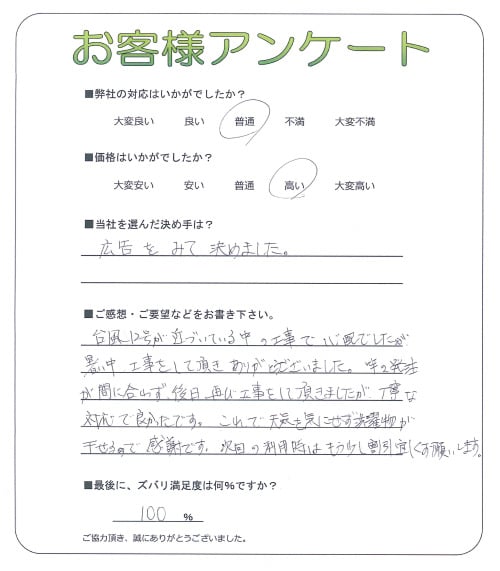 お客様アンケート
■弊社の対応はいかがでしたか?
大変良い 良い 普通 不満 大変不満
■価格はいかがでしたか?
大変安い 安い 普通 高い 大変高い
■当社を選んだ決め手は?
広告をみて決めました。
■ご感想・ご要望などをお書き下さい。
台風12号が近づいている中の工事で心配でしたが
暑い中工事をして頂きありがとうございました。竿の発注
が間に合わず、後日、再び工事をして頂きましたが、丁寧な
対応で良かったです。これで天気を気にせず洗濯物が
干せるので感謝です。次回の利用時はもう少し割引宜しくお願いします。
■最後に、ズバリ満足度は何%ですか?
100 %
ご協力頂き、誠にありがとうございました。